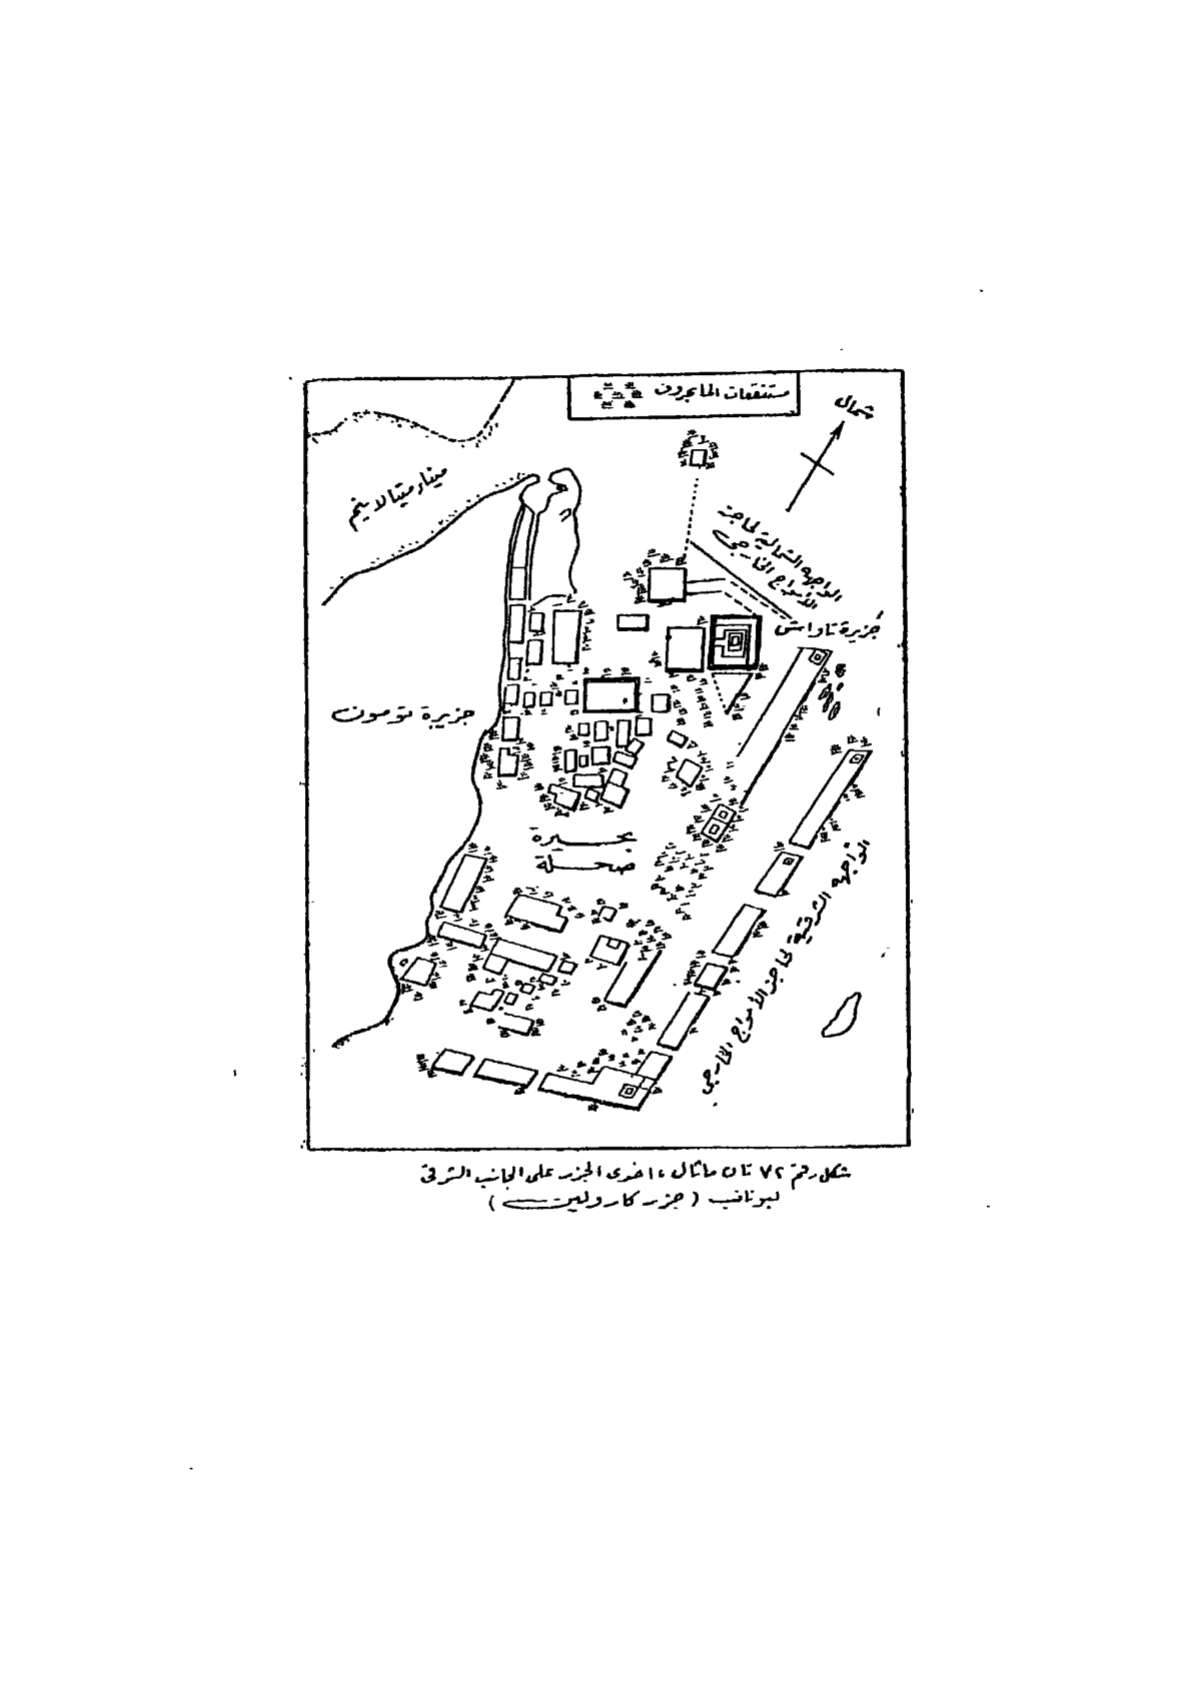 مستنقعات المانجروف
شمال
ميناء ميتالاينم
الواجهه الشمالية لحاجز
الأمواج الخارجى
جزيرة ناواتش
جزيرة تومون
بحيرة
ضحلة
الواجهه الشرقية لحاجز الأمواج الخارجى
شكل رقم ٧٢ نان ماتال ، احدى الجزر على الجانب الشرقى
لبوناب ( جزر كارولين )